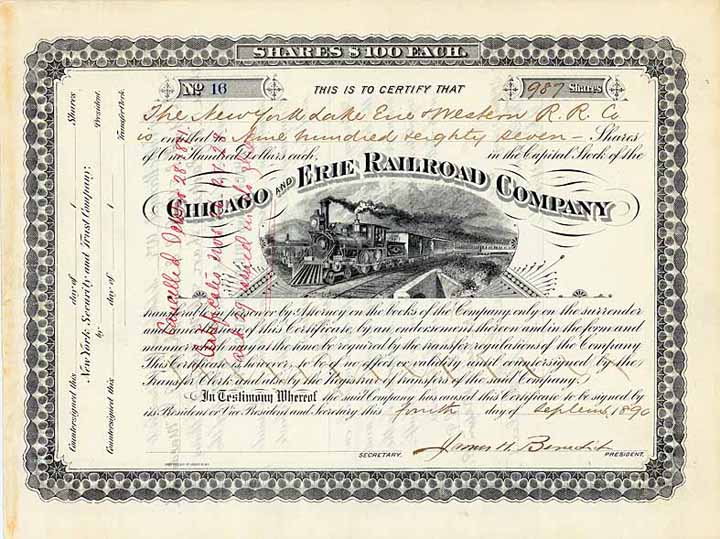 SHARES $100 EACH.
No 16 THIS IS TO CERTIFY THAT 987 Shares
The New York Lake Erie & Western R. R. Co
is entitled to Nine hundred & eighty seven — Shares
of One Hundred Dollars each in the Capital Stock of the
CHICAGO AND ERIE RAILROAD COMPANY
transferable in person or by Attorney on the books of the Company only on the surrender
and cancellation of this Certificate, by an endorsement thereon and in the form and
manner which may at the time be required by the transfer regulations of the Company.
This Certificate is however, to be of no effect or validity until countersigned by the
Transfer Clerk and also by the Registrar of transfers of the said Company.
In Testimony Whereof the said Company has caused this Certificate to be signed by
its President or Vice President and Secretary this fourth day of Septemb. 1890
James H. Benedict
SECRETARY. PRESIDENT.
Shares President. Transfer Clerk.
Countersigned this day of 1
New York Security and Trust Company:
By
Countersigned this day of 1
Cancelled 28 1891
Certificates nos
and issued